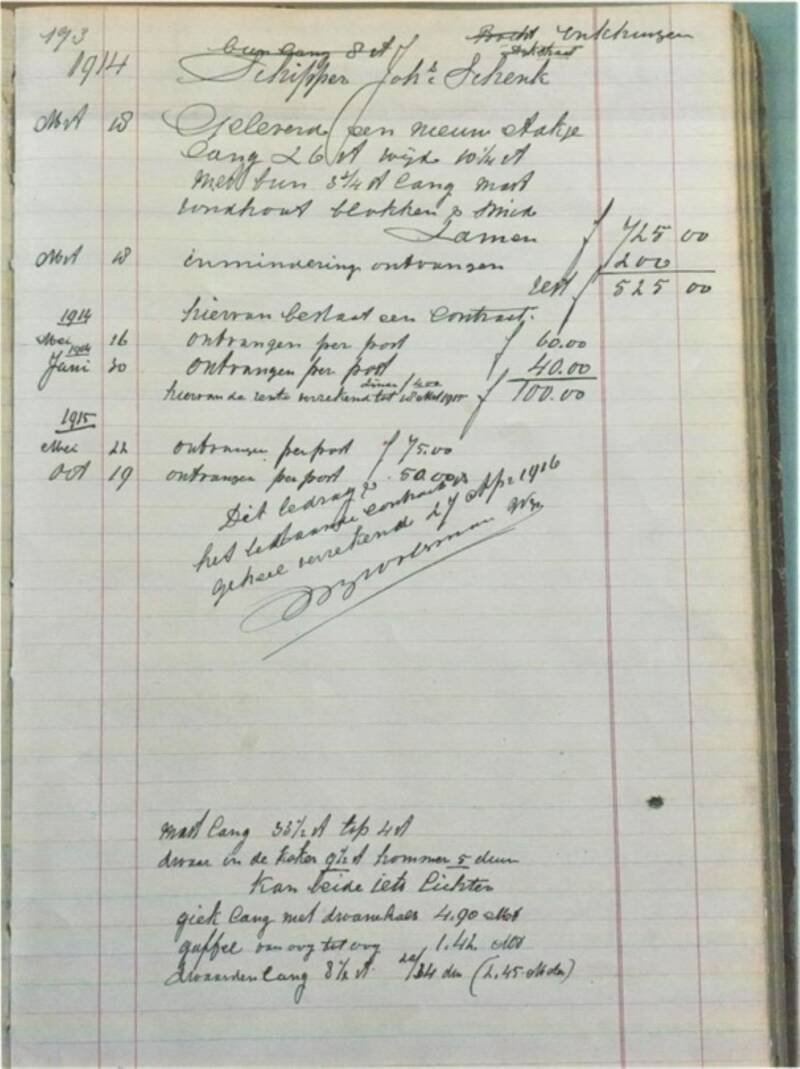 193 Enkhuizen
bun lang 8 vt
1914 Schipper Johs Schenk
Mrt 18 Geleverd een nieuw Aakje
lang 26 vt wijd 10 1/4 vt
met bun lang mast
rondhout blokken & smid
Zamen f 725 00
Mrt 18 inmindering ontvangen 200
rest f 525 00
1914 hiervan bestaat een Contract.
Mei 16 ontvangen per post f 60.00
1914
Juni 30 ontvangen per post 40.00
f 100.00
hiervan de rente verrekend tot 18 Mrt 1915
1915
Mei 22 ontvangen per post f 75.00
Oct 19 ontvangen per post . 50.00
Dit bedrag is
het bestaande contract is
geheel verrekend 27 Apr 1916
mast lang 33 1/2 vt top 4 vt
dwaar in de koker 9 1/2 vt hommer 5 duim
Kan beide iets lichten
giek lang met 4.90 Mtr
gaffel van oog tot oog 1.42 Mtr
zwaarden lang 8 1/2 vt (2.45 Mtr)